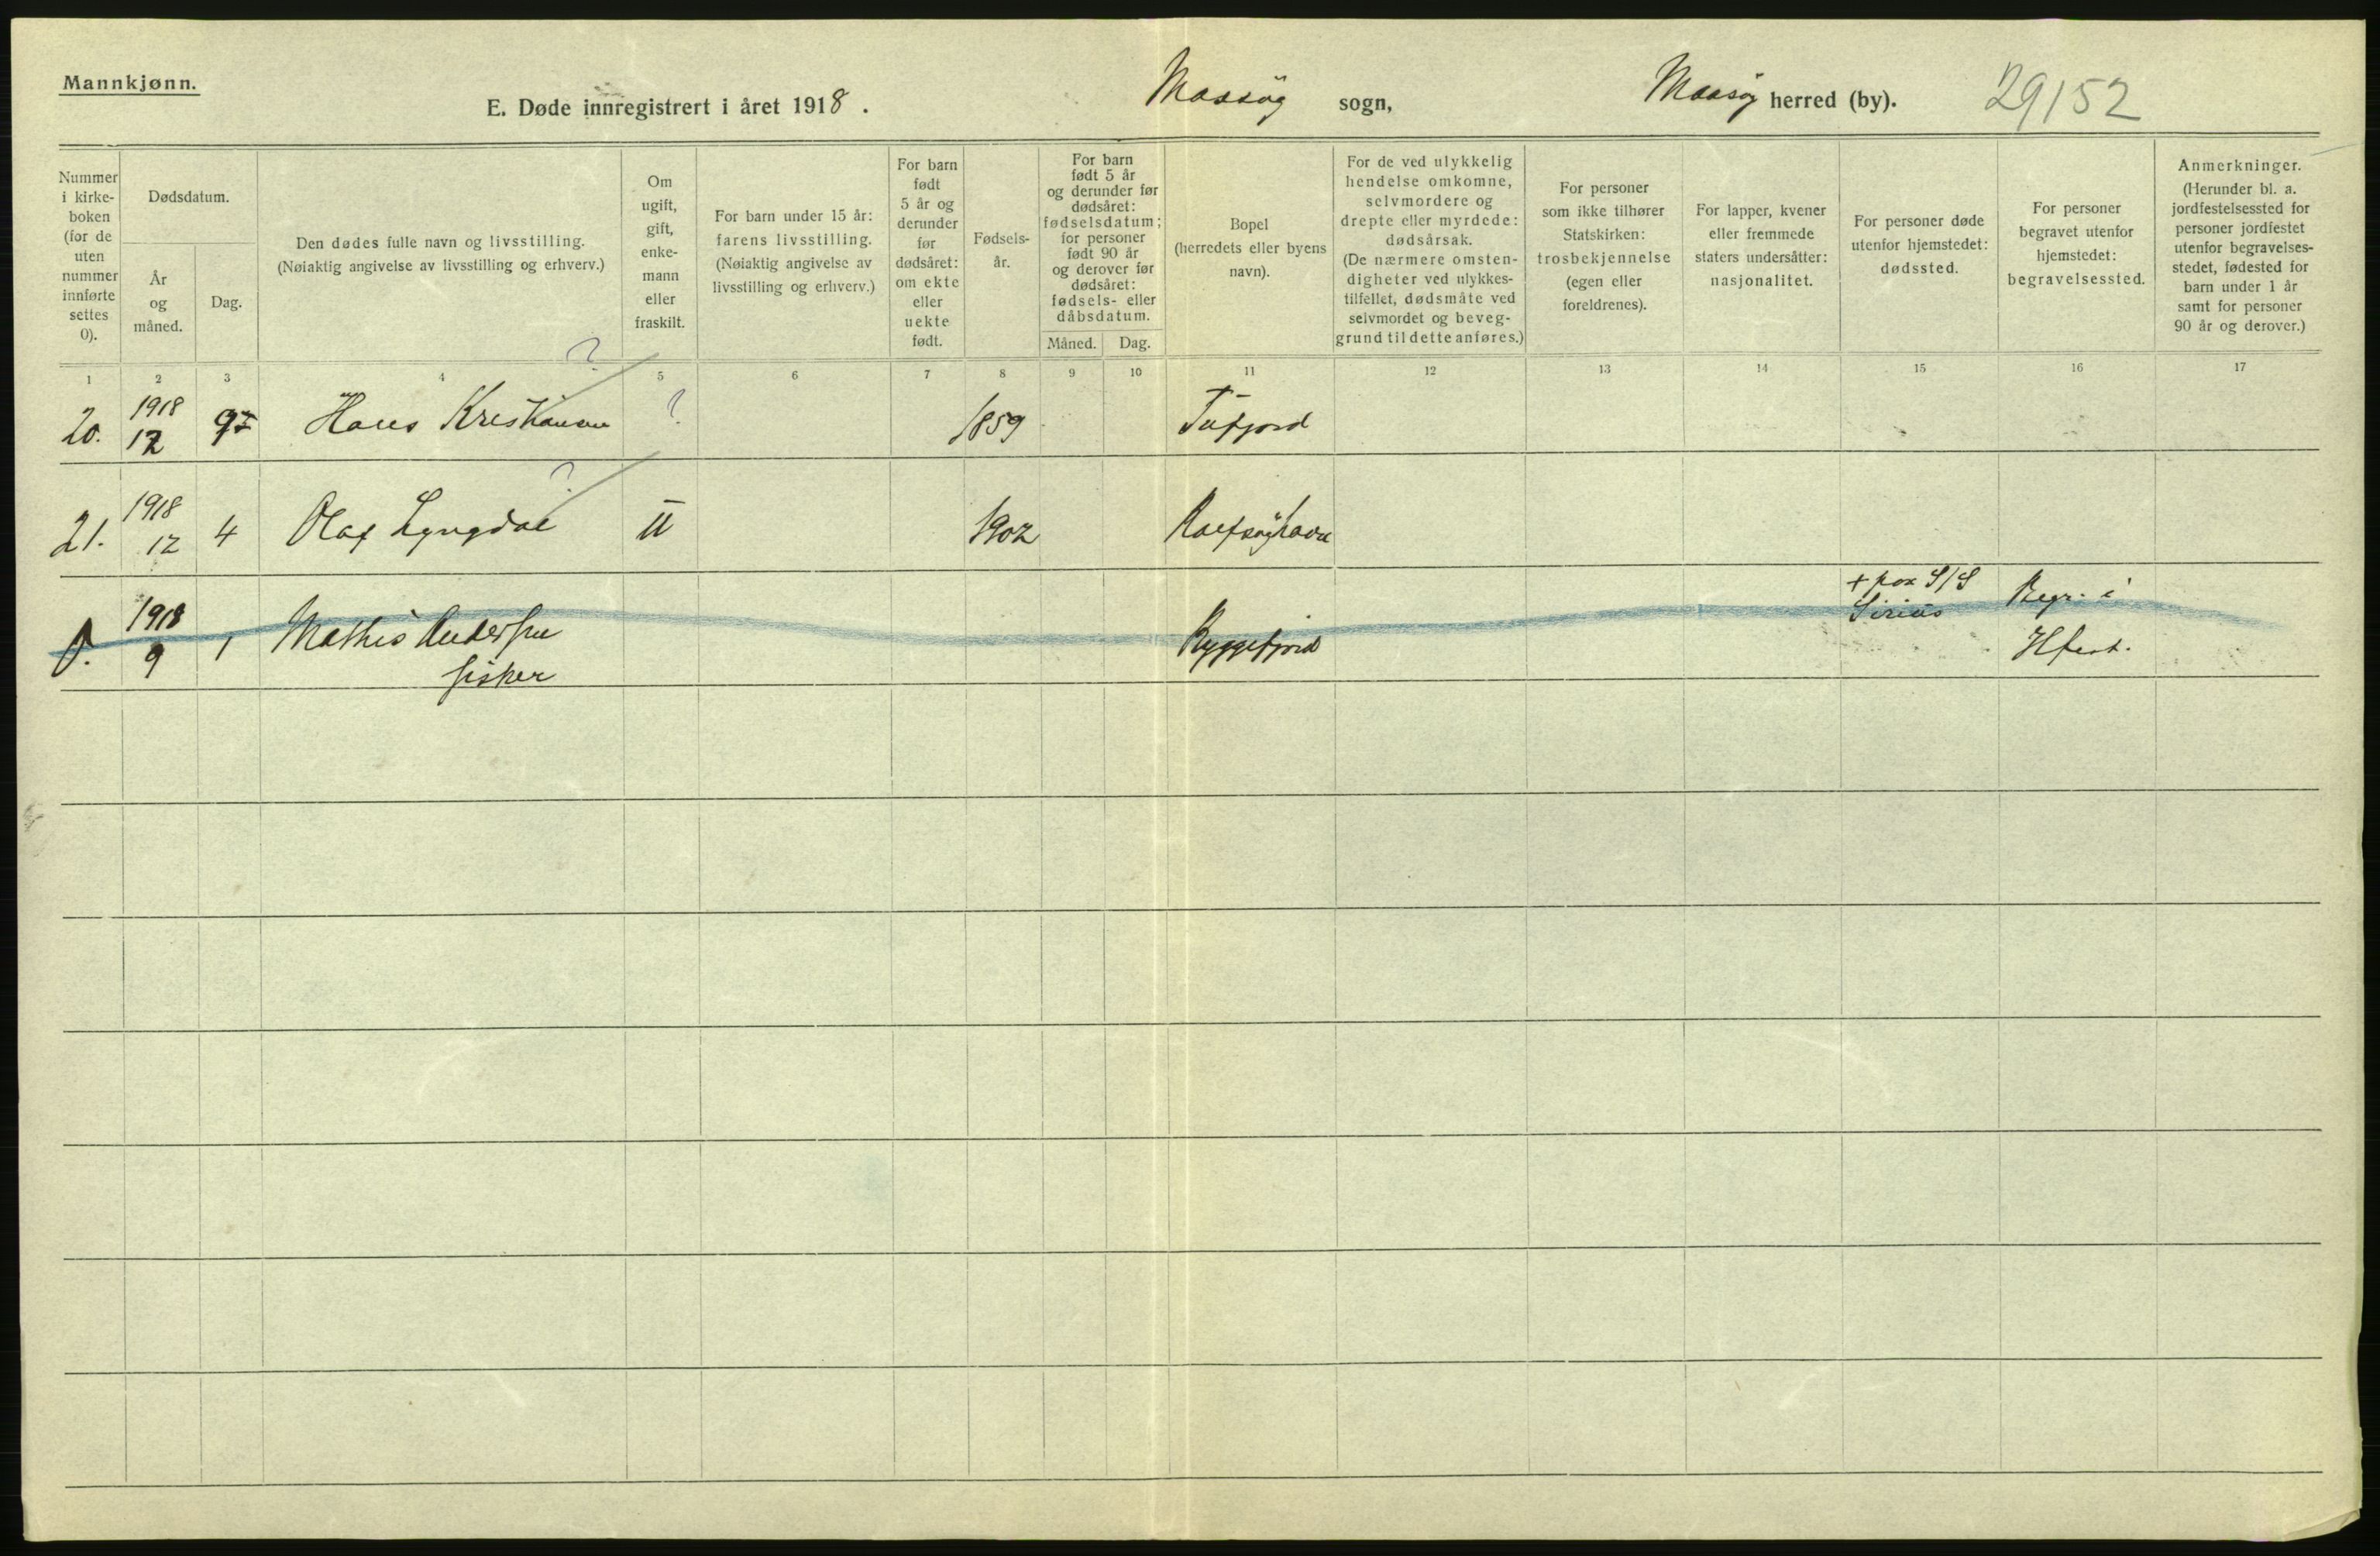 Mannkjønn.
E. Døde innregistrert i året 1918. Massöy sogn, Maasöy herred (by). 29152
Nummer
i kirke-
boken
(for de
uten
nummer
innførte
settes
0).
Dødsdatum.
År
og
måned.
Dag.
Den dødes fulle navn og livsstilling.
(Nøiaktig angivelse av livsstilling og erhverv.)
Om
ugift,
gift,
enke-
mann
eller
fraskilt.
For barn under 15 år:
farens livsstilling.
(Nøiaktig angivelse av
livsstilling og erhverv.)
For barn
født
5 år og
derunder
før
dødsåret:
om ekte
eller
uekte
født.
Fødsels-
år.
For barn
født 5 år
og derunder før
dødsåret:
fødselsdatum;
for personer
født 90 år
og derover før
dødsåret:
fødsels- eller
dåbsdatum.
Måned. Dag.
Bopel
(herredets eller byens
navn).
For de ved ulykkelig
hendelse omkomne,
selvmordere og
drepte eller myrdede:
dødsårsak.
(De nærmere omsten-
digheter ved ulykkes-
tilfellet, dødsmåte ved
selvmordet og beveg-
grund til dette anføres.)
For personer
som ikke tilhører
Statskirken:
trosbekjennelse
(egen eller
foreldrenes).
For lapper, kvener
eller fremmede
staters undersåtter:
nasjonalitet.
For personer døde
utenfor hjemstedet:
dødssted.
For personer
begravet utenfor
hjemstedet:
begravelsessted.
Anmerkninger.
(Herunder bl. a.
jordfestelsessted for
personer jordfestet
utenfor begravelses-
stedet, fødested for
barn under 1 år
samt for personer
90 år og derover.)
1 2 3 4 5 6 7 8 9 10 11 12 13 14 15 16 17
?
20. 1918 12 Hans Kristiansen ? 1859 Tufjord
?
21. 1918 12 4 Olaf Lyngdal U 1902 Rolfsöyhavn
0. 1918 9 1 Mathis Andersen Ryggefjord + paa S/S Sirius Begr. i Hfest.
fisker